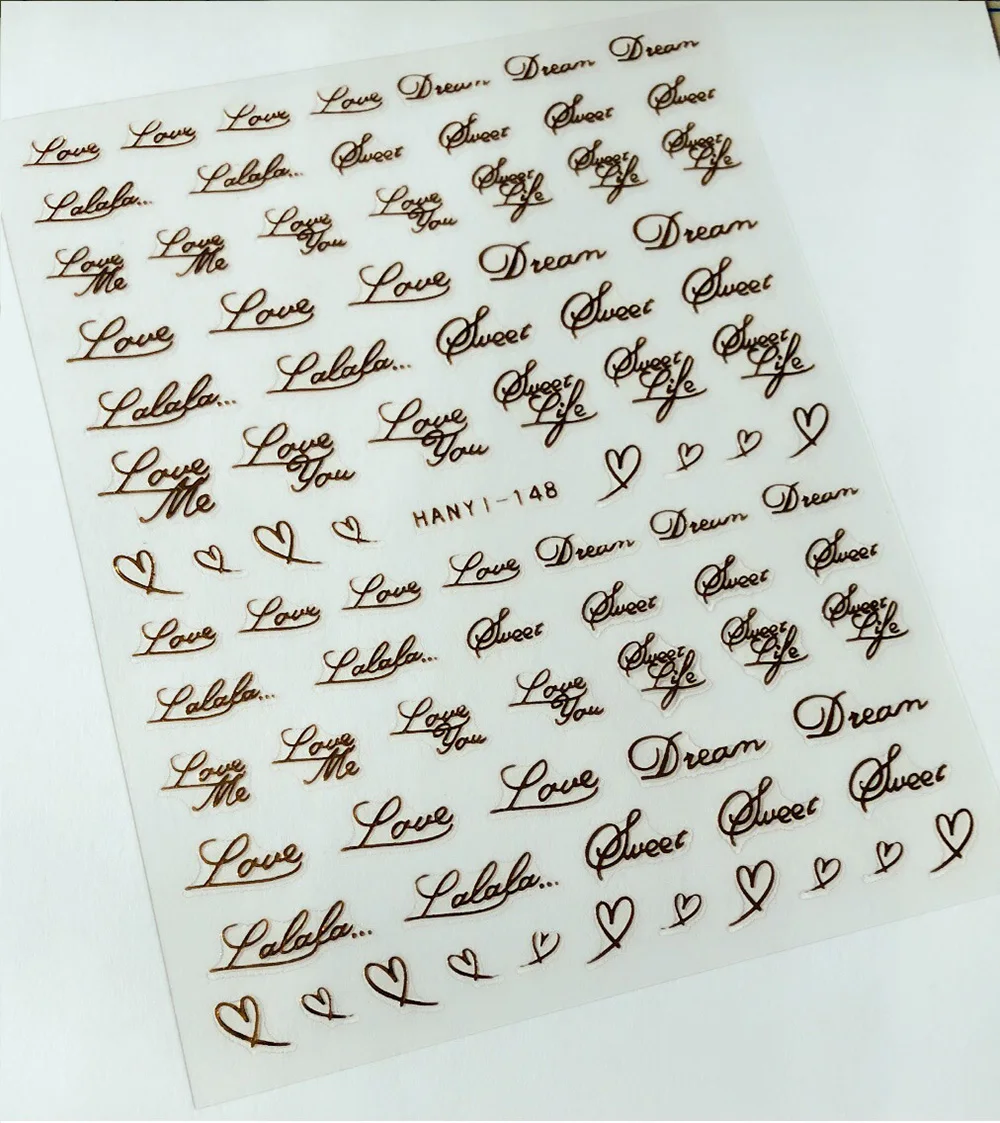 Love Love Love Love Dream Dream Dream
Lalala... Lalala... Sweet Sweet Sweet Sweet
Love Me Love Me Love You Love You Sweet Life Sweet Life Sweet Life
Love Love Love Dream Dream
Lalala... Lalala... Sweet Sweet Sweet
Love Me Love You Love You Sweet Life Sweet Life Sweet Life
HANYI-148
Love Love Love Love Dream Dream Dream
Lalala... Lalala... Sweet Sweet Sweet Sweet
Love Me Love Me Love You Love You Sweet Life Sweet Life Sweet Life
Love Love Love Dream Dream
Lalala... Lalala... Sweet Sweet Sweet